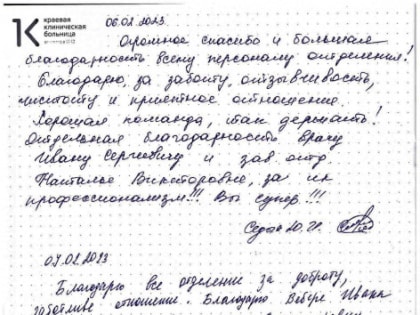 краевая
клиническая
больница
06.02.2023
Огромное спасибо и большая
благодарность всему персоналу отделения!
Благодарю, за заботу, отзывчивость,
чистоту и приятное отношение.
Хорошая команда, так держать!
Отдельная благодарность врачу
Ивану Сергеевичу и зав отд.
Наталье Викторовне, за их
профессионализм!!! Вы супер!!!
07.02.2023
Благодарю все отделение за доброту,
заботливое отношение. Благодарю Ивана